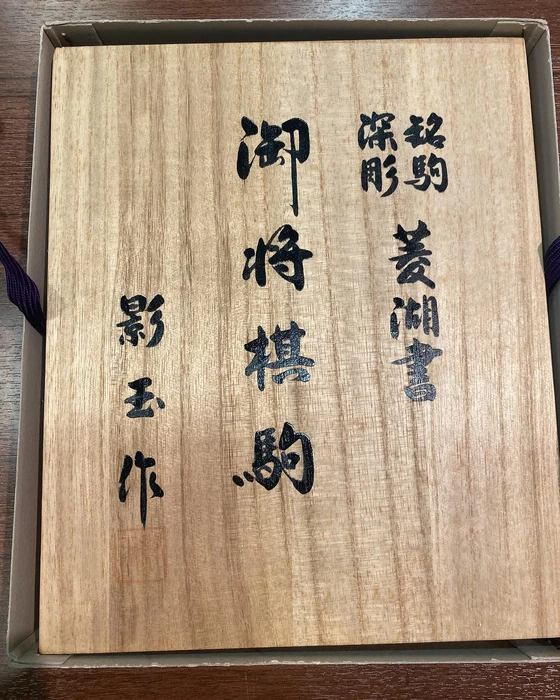 銘駒
深彫
菱湖書
御将棋駒
影玉作